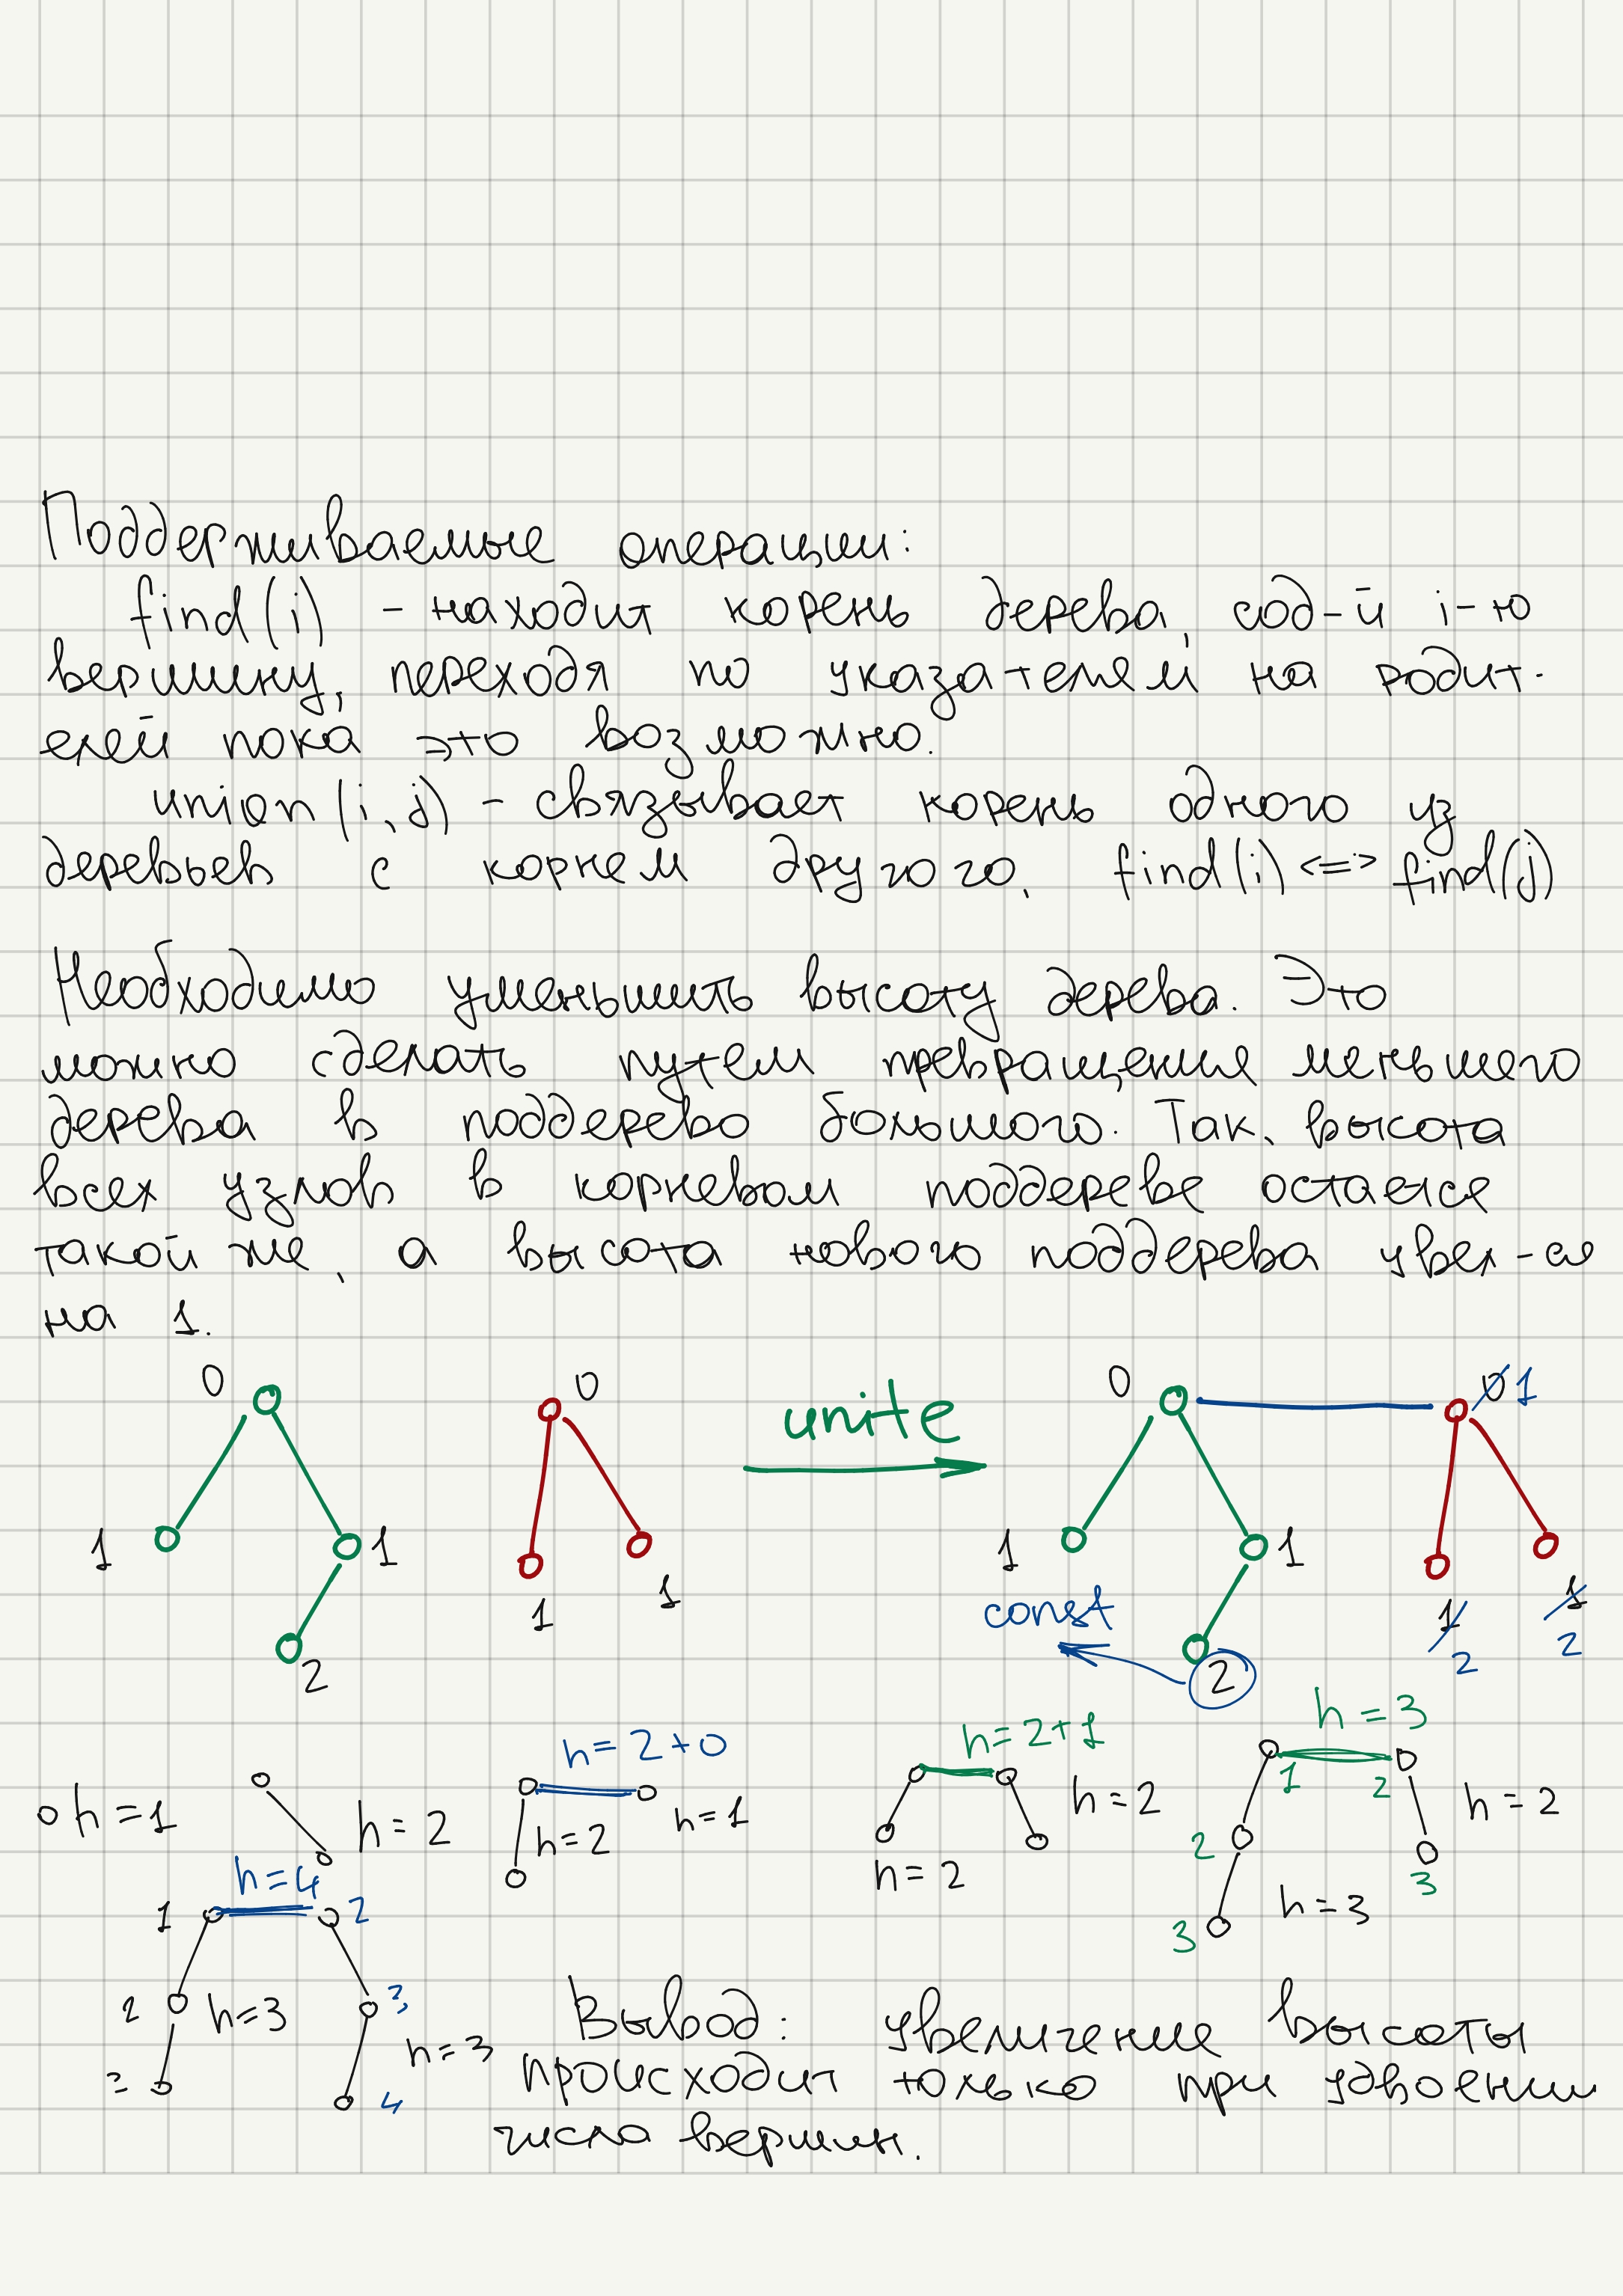 Поддерживаемые операции:
find(i) - находит корень дерева, сод-й i-ю
вершину, переходя по указателем на родит-
елей пока это возможно.
union(i,j) - связывает корень одного из
деревьев с корнем другого. find(i) <=> find(j)
Необходимо уменьшить высоту дерева. Это
можно сделать путем превращения меньшего
дерева в поддерево большого. Так, высота
всех узлов в корневом поддереве остается
такой же, а высота нового поддерева увел-ся
на 1.
0 0 unite 0 0 1
1 1 1 1 1 1 1 1
const 2 2
2 2
h=3
h=2+0 h=2+1
h=1 h=2 h=2 h=1 h=2 1 2 h=2
h=2 2 3
h=4
1 2 h=3
3
2 h=3 3
h=3
4
Вывод: увеличение высоты
происходит только при удвоении
числа вершин.